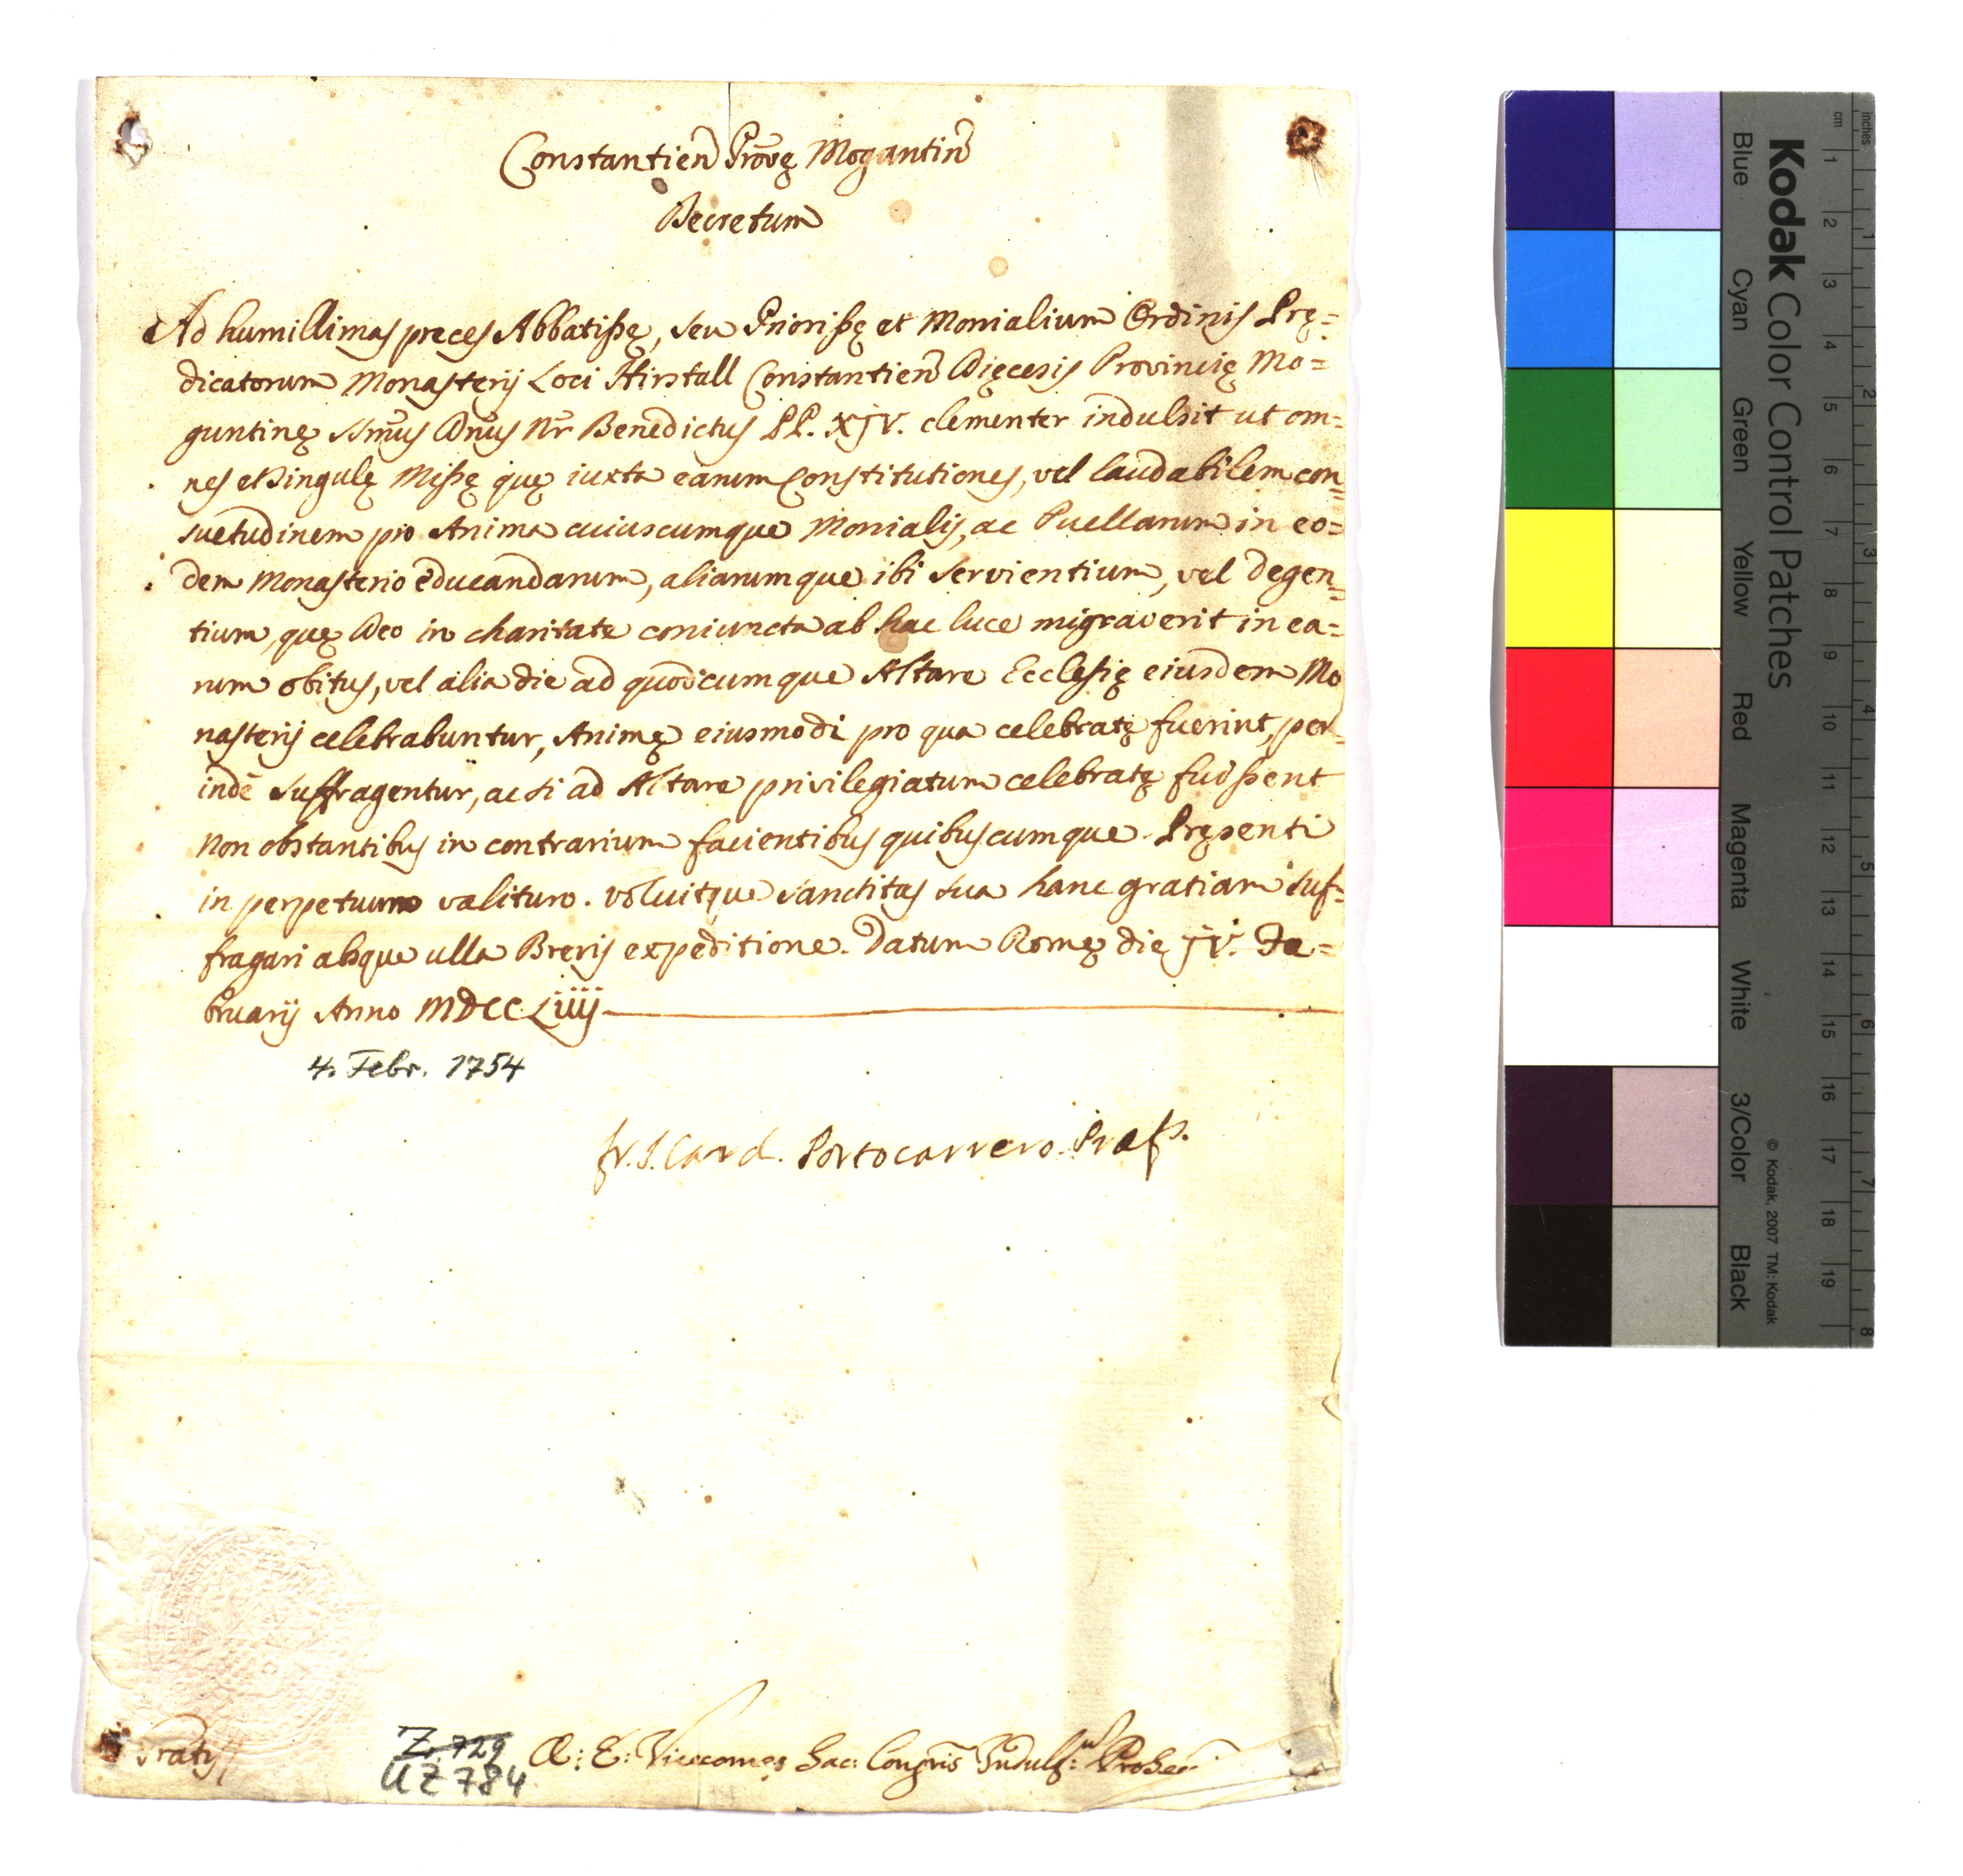 Constantien Provę Mogantin
Decretum
Ad humillimas preces Abbatißę, seu Priorißę et Monialium Ordinis Prę=
dicatorum Monasterij Loci Hirstall Constantien Dięcesis Provincię Mo=
guntinę Ssm̃us Dñus Nr̃ Benedictus PP. XJV. clementer indulsit ut om=
nes et singulę Mißę quę iuxta earum Constitutiones, vel laudabilem con=
suetudinem pro Anima cuiuscumque Monialis, ac Puellarum in eo=
dem Monasterio educandarum, aliarumque ibi servientium, vel degen=
tium, quę Deo in charitate coniuncta ab hac luce migraverit in ea=
rum obitus, vel alia die ad quodcumque Altare Ecclesię eiusdem Mo
nasterij celebrabuntur, Animę eiusmodi pro qua celebratę fuerint, per=
indè suffragentur, ac si ad Altare privilegiatum celebratę fuißent
Non obstantibus in contrarium facientibus quibuscumque. Pręsenti
in perpetuum valituro. voluitque sanctitas sua hanc gratiam suf=
fragari absque ulla Brevis expeditione. Datum Romę die JV. Fe=
bruarij Anno MDCCLiiij
4. Febr. 1754
fr. J. Card. Portocarrero Praf.
Gratis
Z. 729
UZ 784
A: E: Vicecomes Sac: Congñis Indulg: ProSec:
Kodak Color Control Patches
Blue Cyan Green Yellow Red Magenta White 3/Color Black
© Kodak, 2007 TM: Kodak
inches 1 2 3 4 5 6 7 8
cm 1 2 3 4 5 6 7 8 9 10 11 12 13 14 15 16 17 18 19